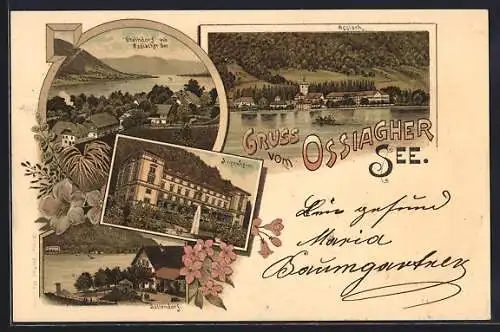 Steindorf mit
Ossiacher See
Ossiach.
GRUSS
vom OSSIAGHER
SEE.
Annenheim
Sattendorf.
Bin gesund
Maria
Baumgartner